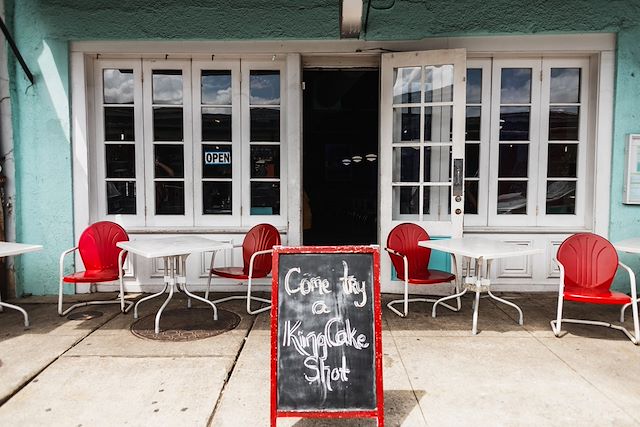 OPEN
Come try
a
King Cake
Shot